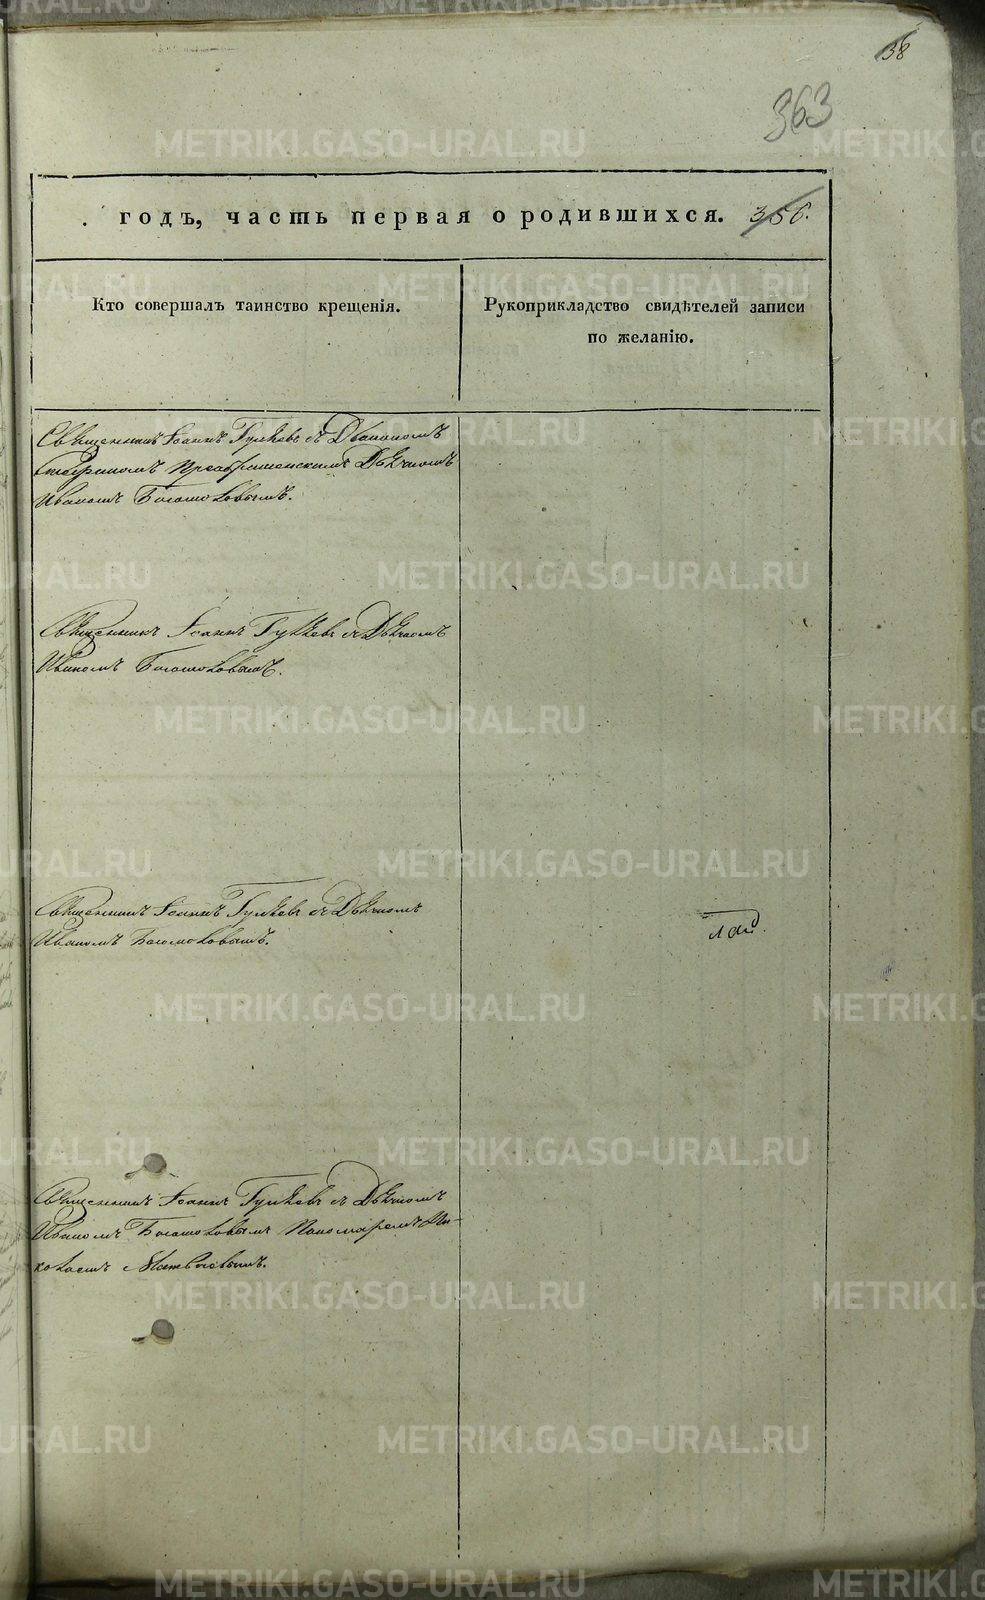 38
363
годъ, часть первая о родившихся. 356.
Кто совершалъ таинство крещенія.
Рукоприкладство свидѣтелей записи
по желанію.
Священникъ Іоаннъ съ Діакономъ
Стефаномъ Преображенскимъ Дьячкомъ
Иваномъ Богомоловымъ.
Священникъ Іоаннъ съ Дьячкомъ
Иваномъ Богомоловымъ.
Священникъ Іоаннъ съ Дьячкомъ
Иваномъ Богомоловымъ.
Священникъ Іоаннъ съ Дьячкомъ
Иваномъ Богомоловымъ Пономаремъ Ни-
колаемъ
METRIKI.GASO-URAL.RU